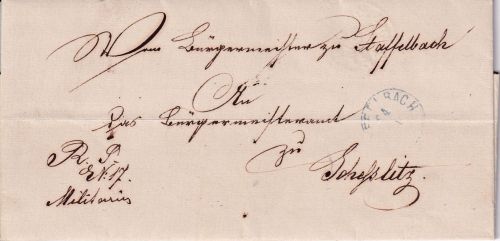 Vom Bürgermeister zu Staffelbach
An
das Bürgermeisteramt
zu
Scheßlitz.
R. S.
E.N. 17.
Militaria